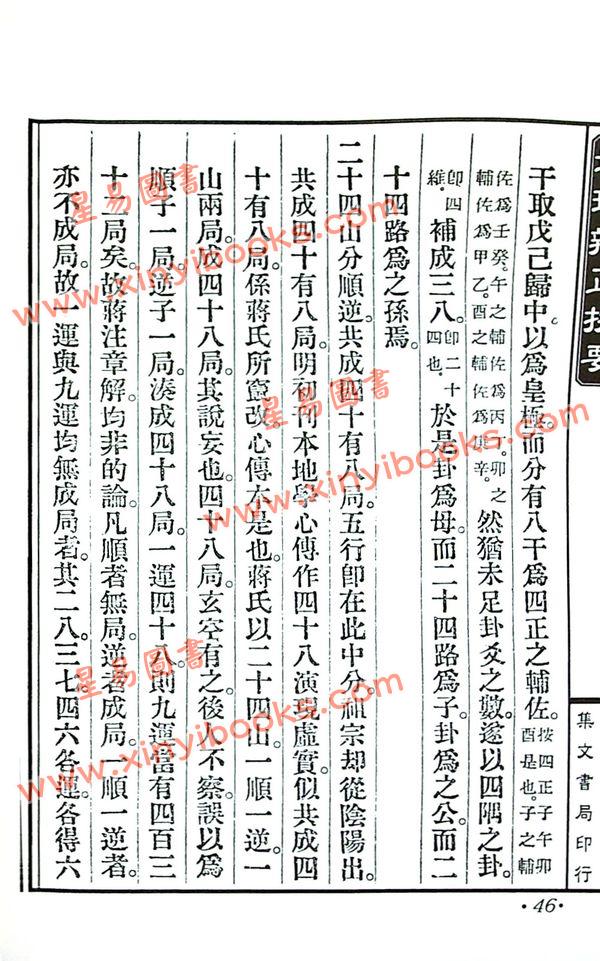 地理辨正抉要
干取戊己歸中。以為皇極。而分有八干為四正之輔佐。按四正子午卯
酉是也。子之輔
佐為壬癸。午之輔佐為丙丁。卯之
輔佐為甲乙。酉之輔佐為庚辛。然猶未足卦爻之數。遂以四隅之卦。
即四
維。補成三八。即二十
四也。於是卦為母。而二十四路為子。卦為之公。而二
十四路為之孫焉。
二十四山分順逆。共成四十有八局。五行即在此中分。祖宗却從陰陽出。
共成四十有八局。明初刊本地學心傳作四十八演現虛實。似共成四
十有八局。係蔣氏所竄改。心傳本是也。蔣氏以二十四山一順一逆。一
山兩局。成四十八局。其說妄也。四十八局玄空有之。後人不察。誤以為
順子一局。逆子一局。湊成四十八局。一運四十八。則九運當有四百三
十二局矣。故蔣注章解。均非的論。凡順者無局。逆者成局。一順一逆者。
亦不成局。故一運與九運均無成局者。其二八三七四六各運。各得六
集文書局印行
·46·
星易圖書
www.xinyibooks.com
星易圖書
www.xinyibooks.com
星易圖書
www.xinyibooks.com